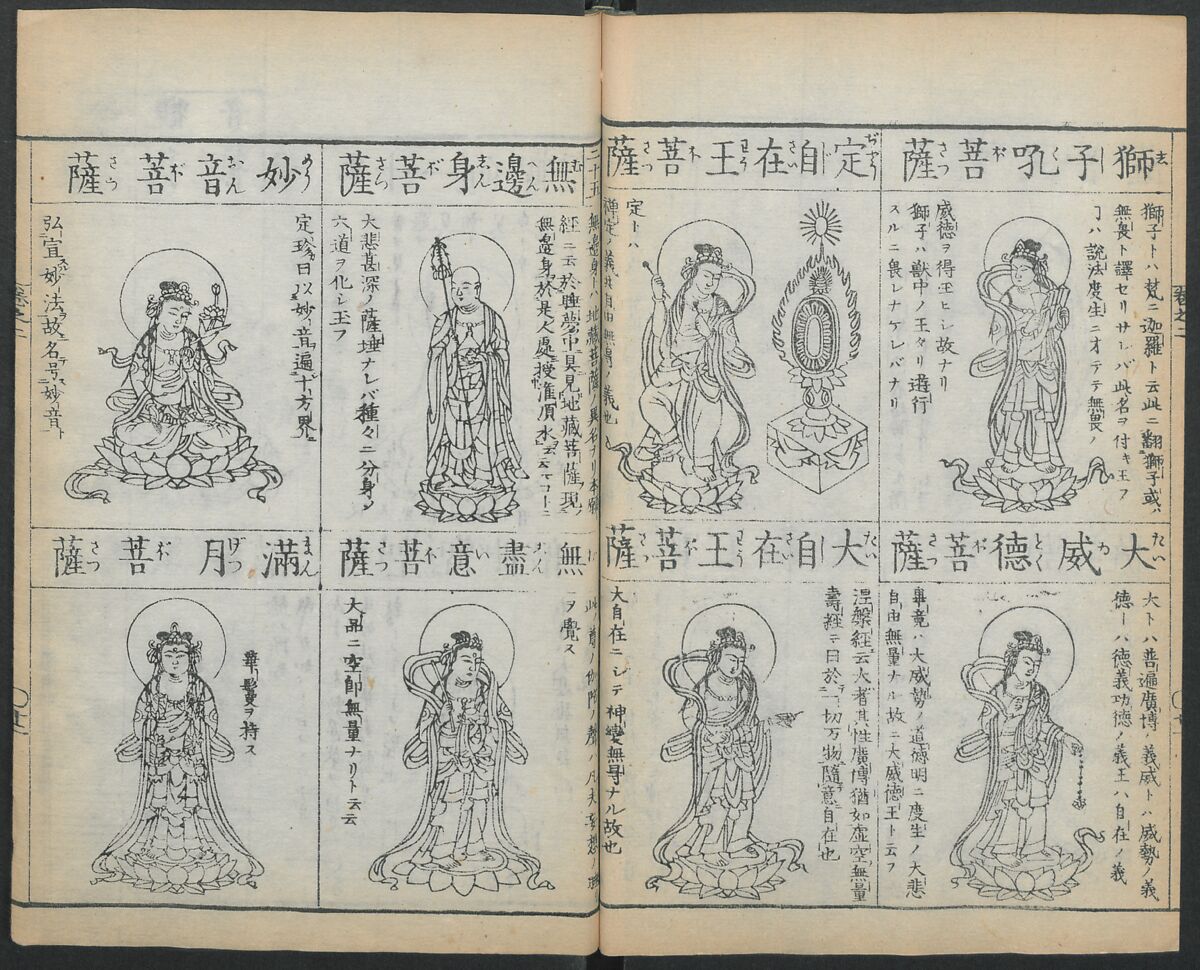 獅子吼菩薩
獅子トハ梵ニ迦羅ト云此ニ翻獅子或ハ
無畏ト譯セリサレバ此名ヲ付キ王フ
説法度生ニオテテ無畏ノ
威德ヲ得玉ヒシ故ナリ
獅子ハ獣中ノ王タリ遊行
スルニ畏レナケレバナリ
定自在王菩薩
定トハ
禅定ノ義
大威德菩薩
大トハ普遍廣博ノ義威トハ威勢ノ義
德ーハ德義功德ノ義王ハ自在ノ義
畢竟ハ大威勢ノ道德明ニ度生ノ大悲
自由無量ナル故ニ大威德王ト云フ
大自在王菩薩
涅槃經云大者其性廣博猶如虚空無量
壽經ニ曰於一切万物隨意自在也
大自在ニシテ神變無㝵ナル故也
二十五
無邊身菩薩
無邊身トハ地藏菩薩ノ異名ナリ本
經ニ云於睡夢中具見地藏菩薩現
無邊身於是人處授潅頂水云云コトニ
大悲甚深ノ薩埵ナレバ種々ニ分身
六道ヲ化シ玉フ
妙音菩薩
定珍曰以妙音遍十方界
弘宣妙法故名号妙音
無盡意菩薩
ヲ覺ス
大品ニ空即無量ナリト云云
滿月菩薩
華鬘ヲ持ス